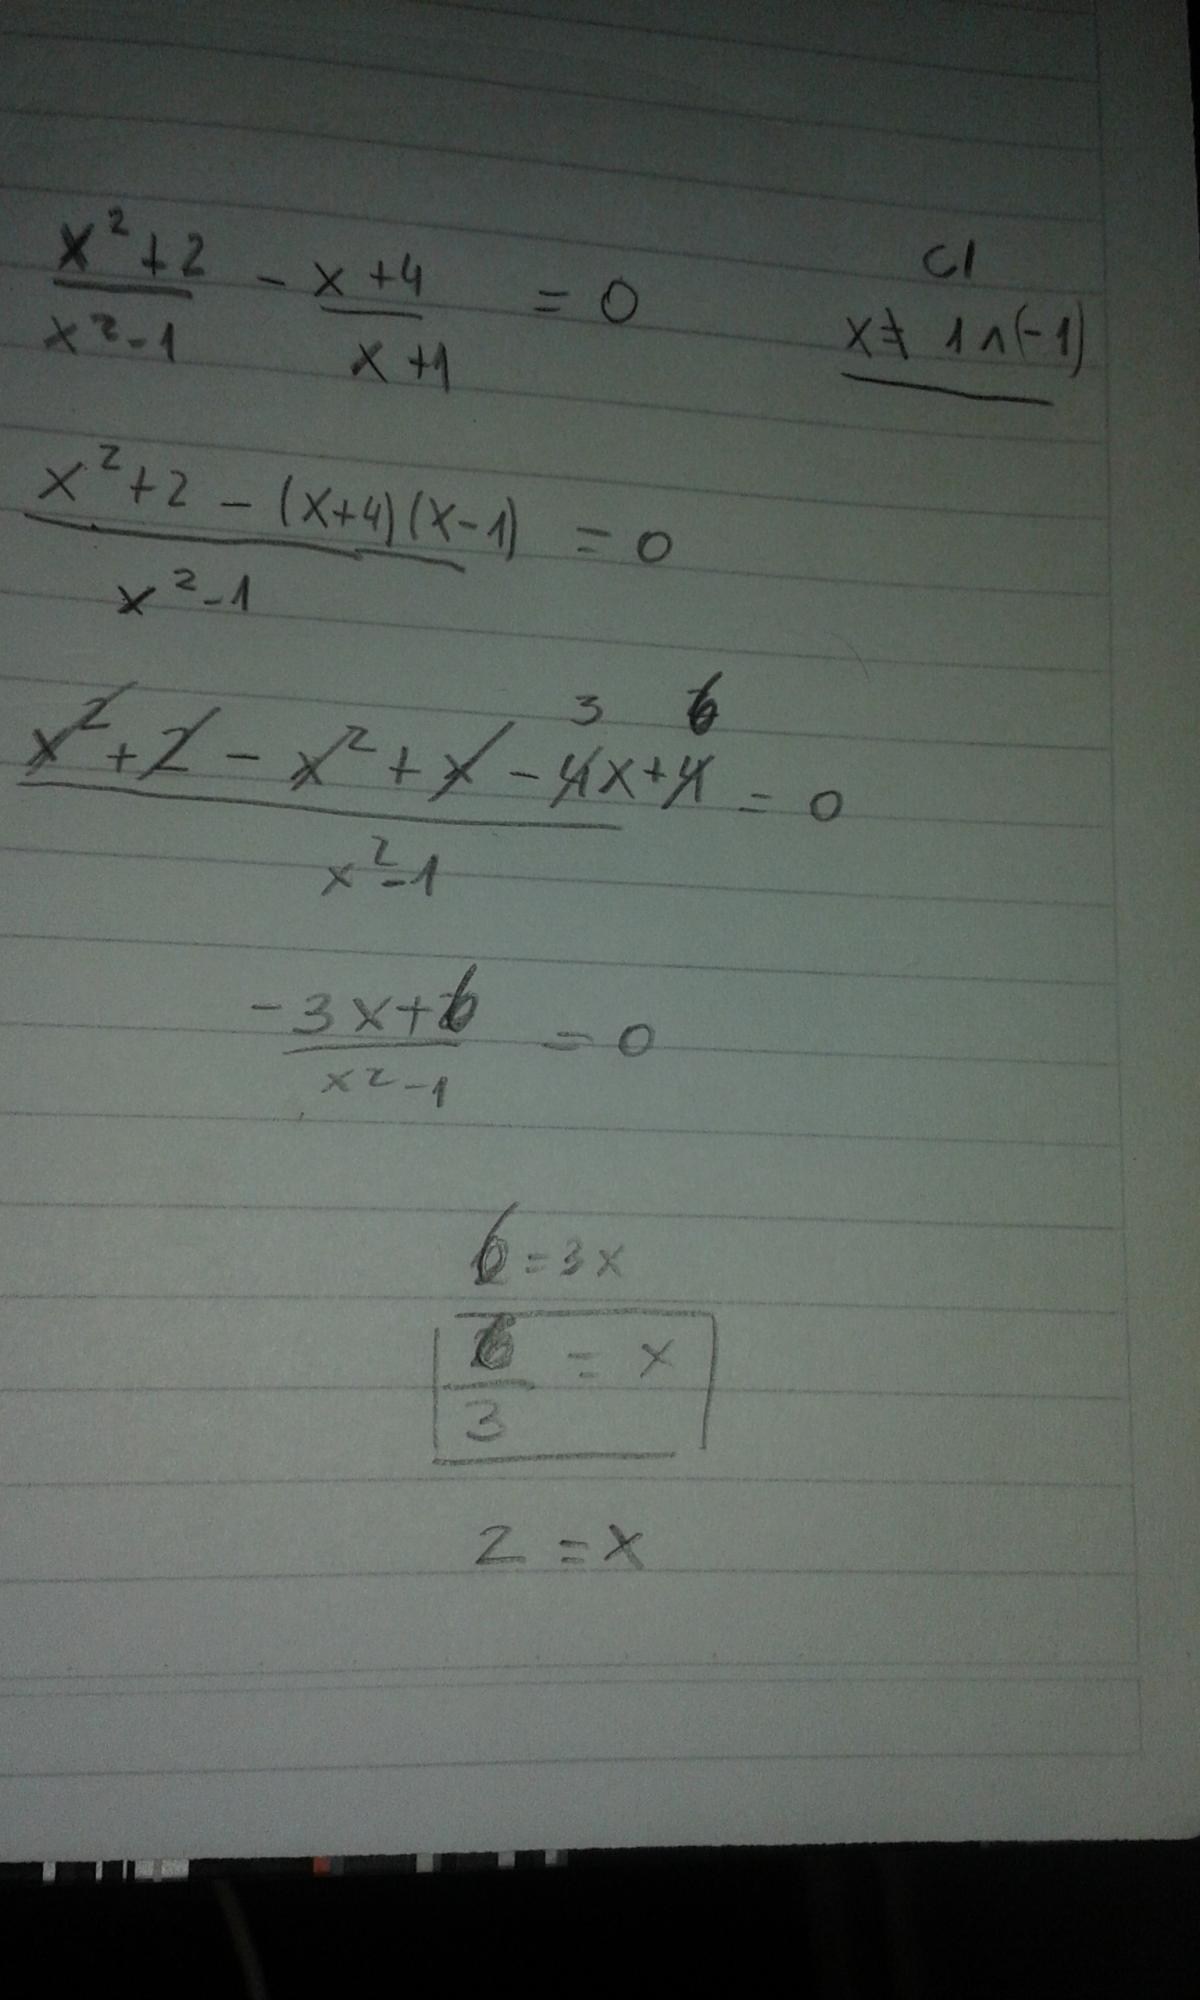 x²+2 / x²-1 - x+4 / x+1 = 0
CI
x ≠ 1 ∧ (-1)
x²+2 - (x+4)(x-1) / x²-1 = 0
3 6
x²+2 - x²+x - 4x+4 / x²-1 = 0
-3x+6 / x²-1 = 0
6=3x
6/3 = x
2 = x